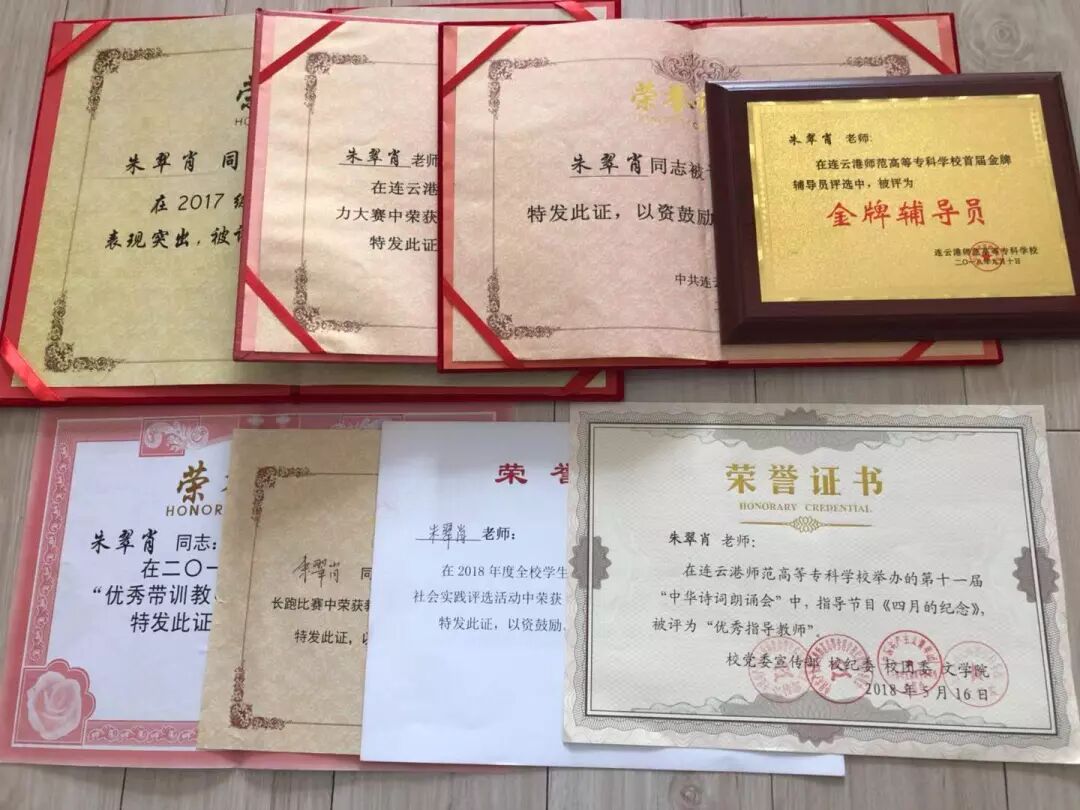 荣
HO
朱翠肖 同
在 2017
表现突出，被
朱翠肖 老师
在连云港
力大赛中荣获
特发此证
荣誉
朱翠肖同志被
特发此证，以资鼓励
中共连云
朱翠肖 老师：
在连云港师范高等专科学校首届金牌
辅导员评选中，被评为
金牌辅导员
连云港师范高等专科学校
二〇一八年九月十日
荣
HONOR
朱翠肖 同志：
在二〇一
“优秀带训教
特发此证
朱翠肖 同
长跑比赛中荣获
特发此证，以
荣誉
朱翠肖 老师：
在 2018 年度全校学生
社会实践评选活动中荣获
特发此证，以资鼓励
荣誉证书
HONORARY CREDENTIAL
朱翠肖 老师：
在连云港师范高等专科学校举办的第十一届
“中华诗词朗诵会”中，指导节目《四月的纪念》，
被评为“优秀指导教师”。
校党委宣传部 校纪委 校团委 文学院
2018 年 5 月 16 日